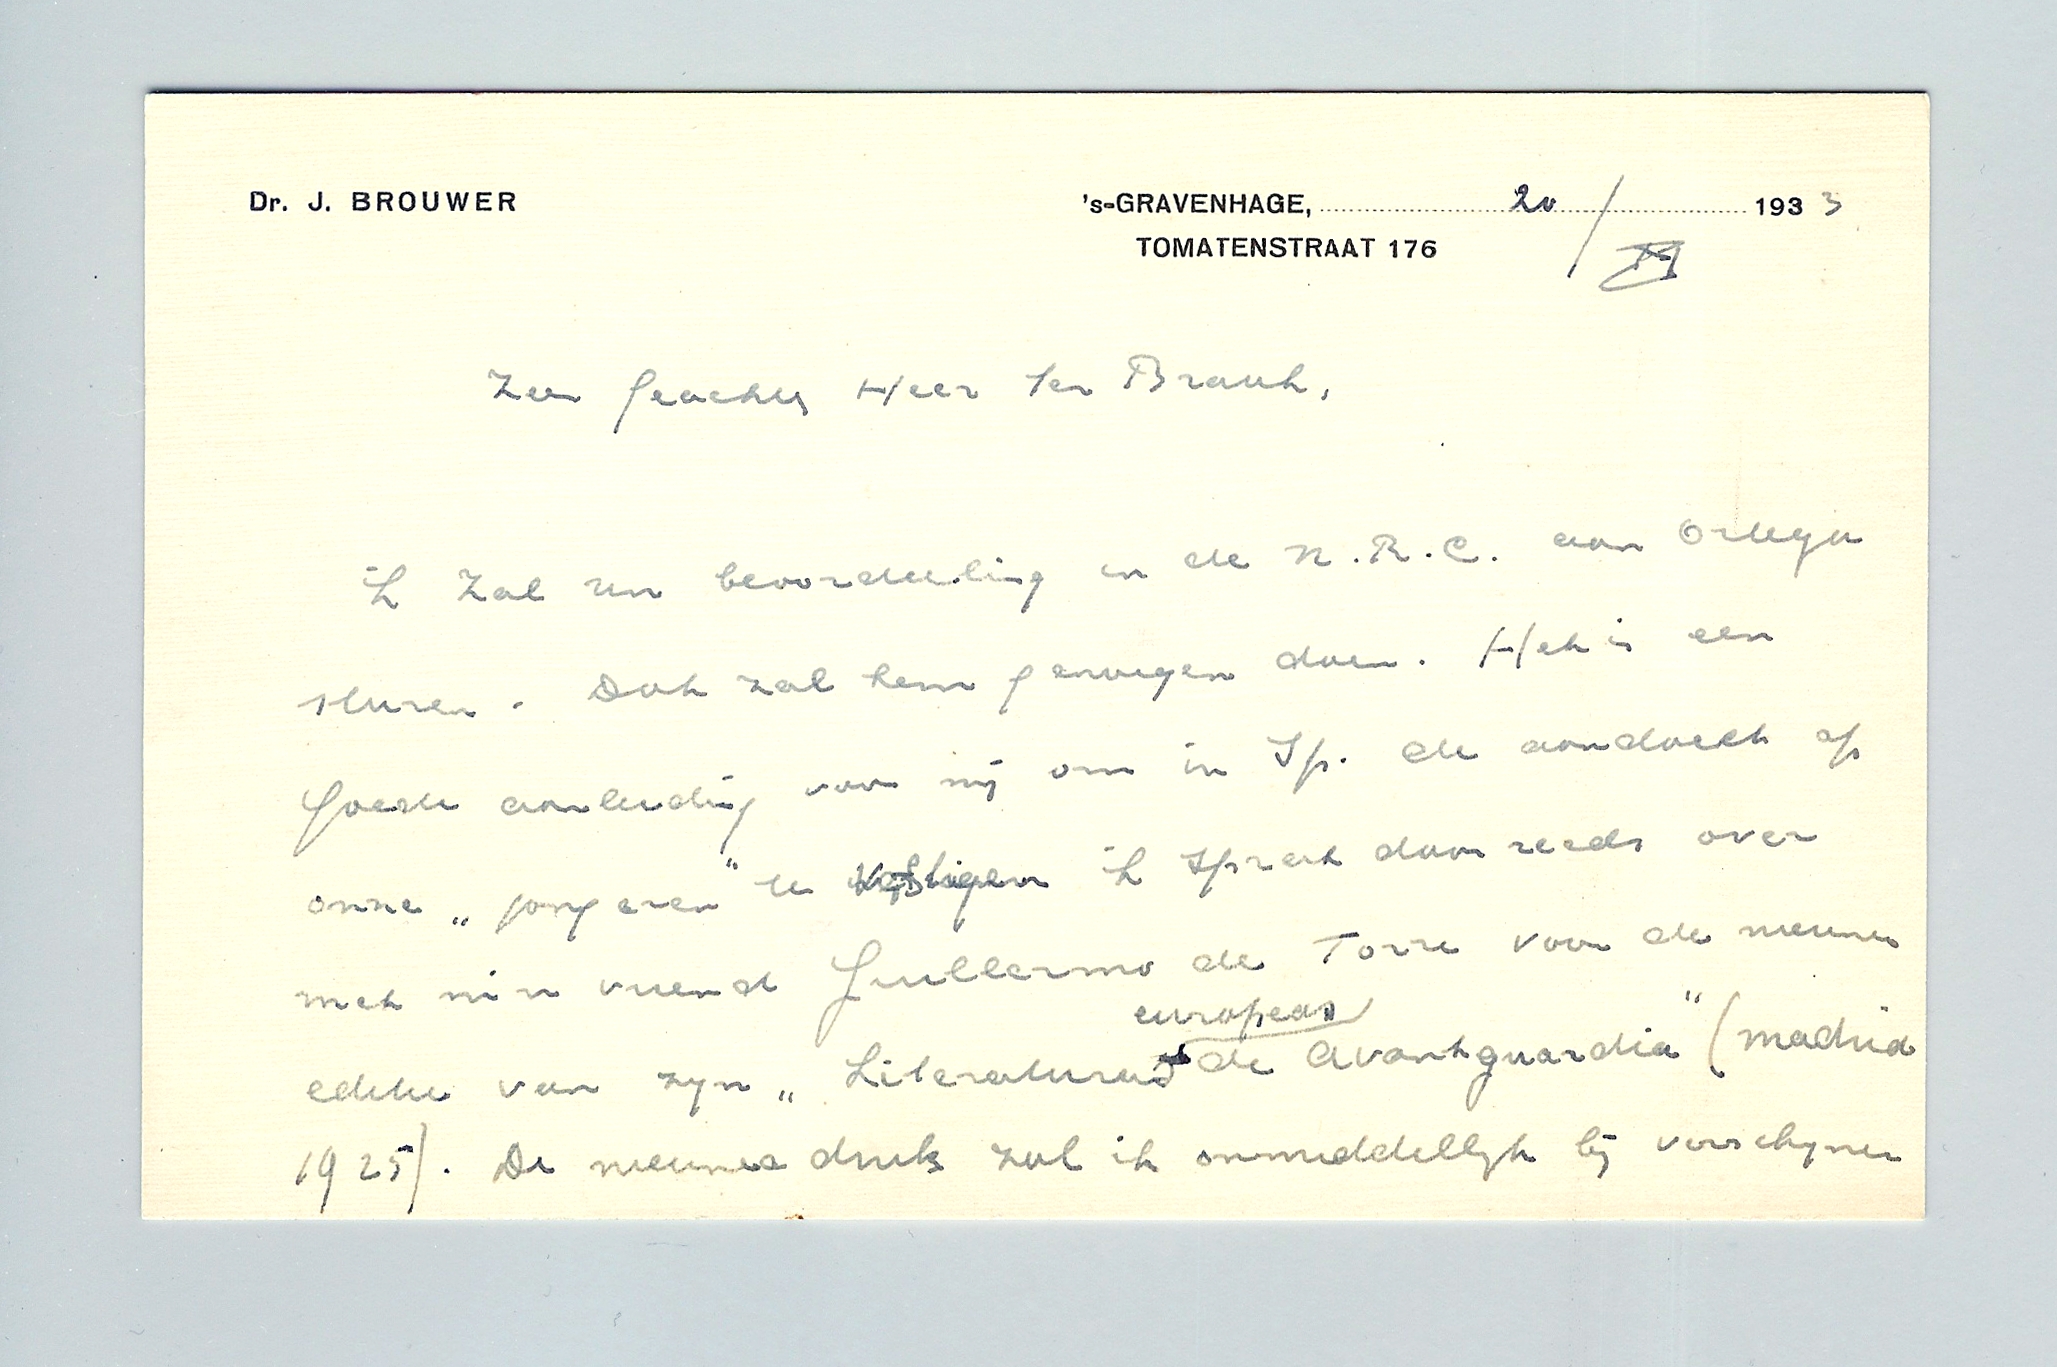 Dr. J. BROUWER
's-GRAVENHAGE, 20/XI 1933
TOMATENSTRAAT 176
Zeer Geachte Heer Ter Braak,
ik zal uw beoordeeling in de N.R.C. aan Ortega
sturen. Dat zal hem genoegen doen. Het is een
goede aanleiding voor mij om in Sp. de aandacht op
onze „jongeren" te vestigen ik sprak daar reeds over
met mijn vriend Guillermo de Torre voor de nieuwe
editie van zijn „Literaturas europeas de Avantguardia" (Madrid
1925). De nieuwe druk zal ik onmiddellijk bij verschijnen